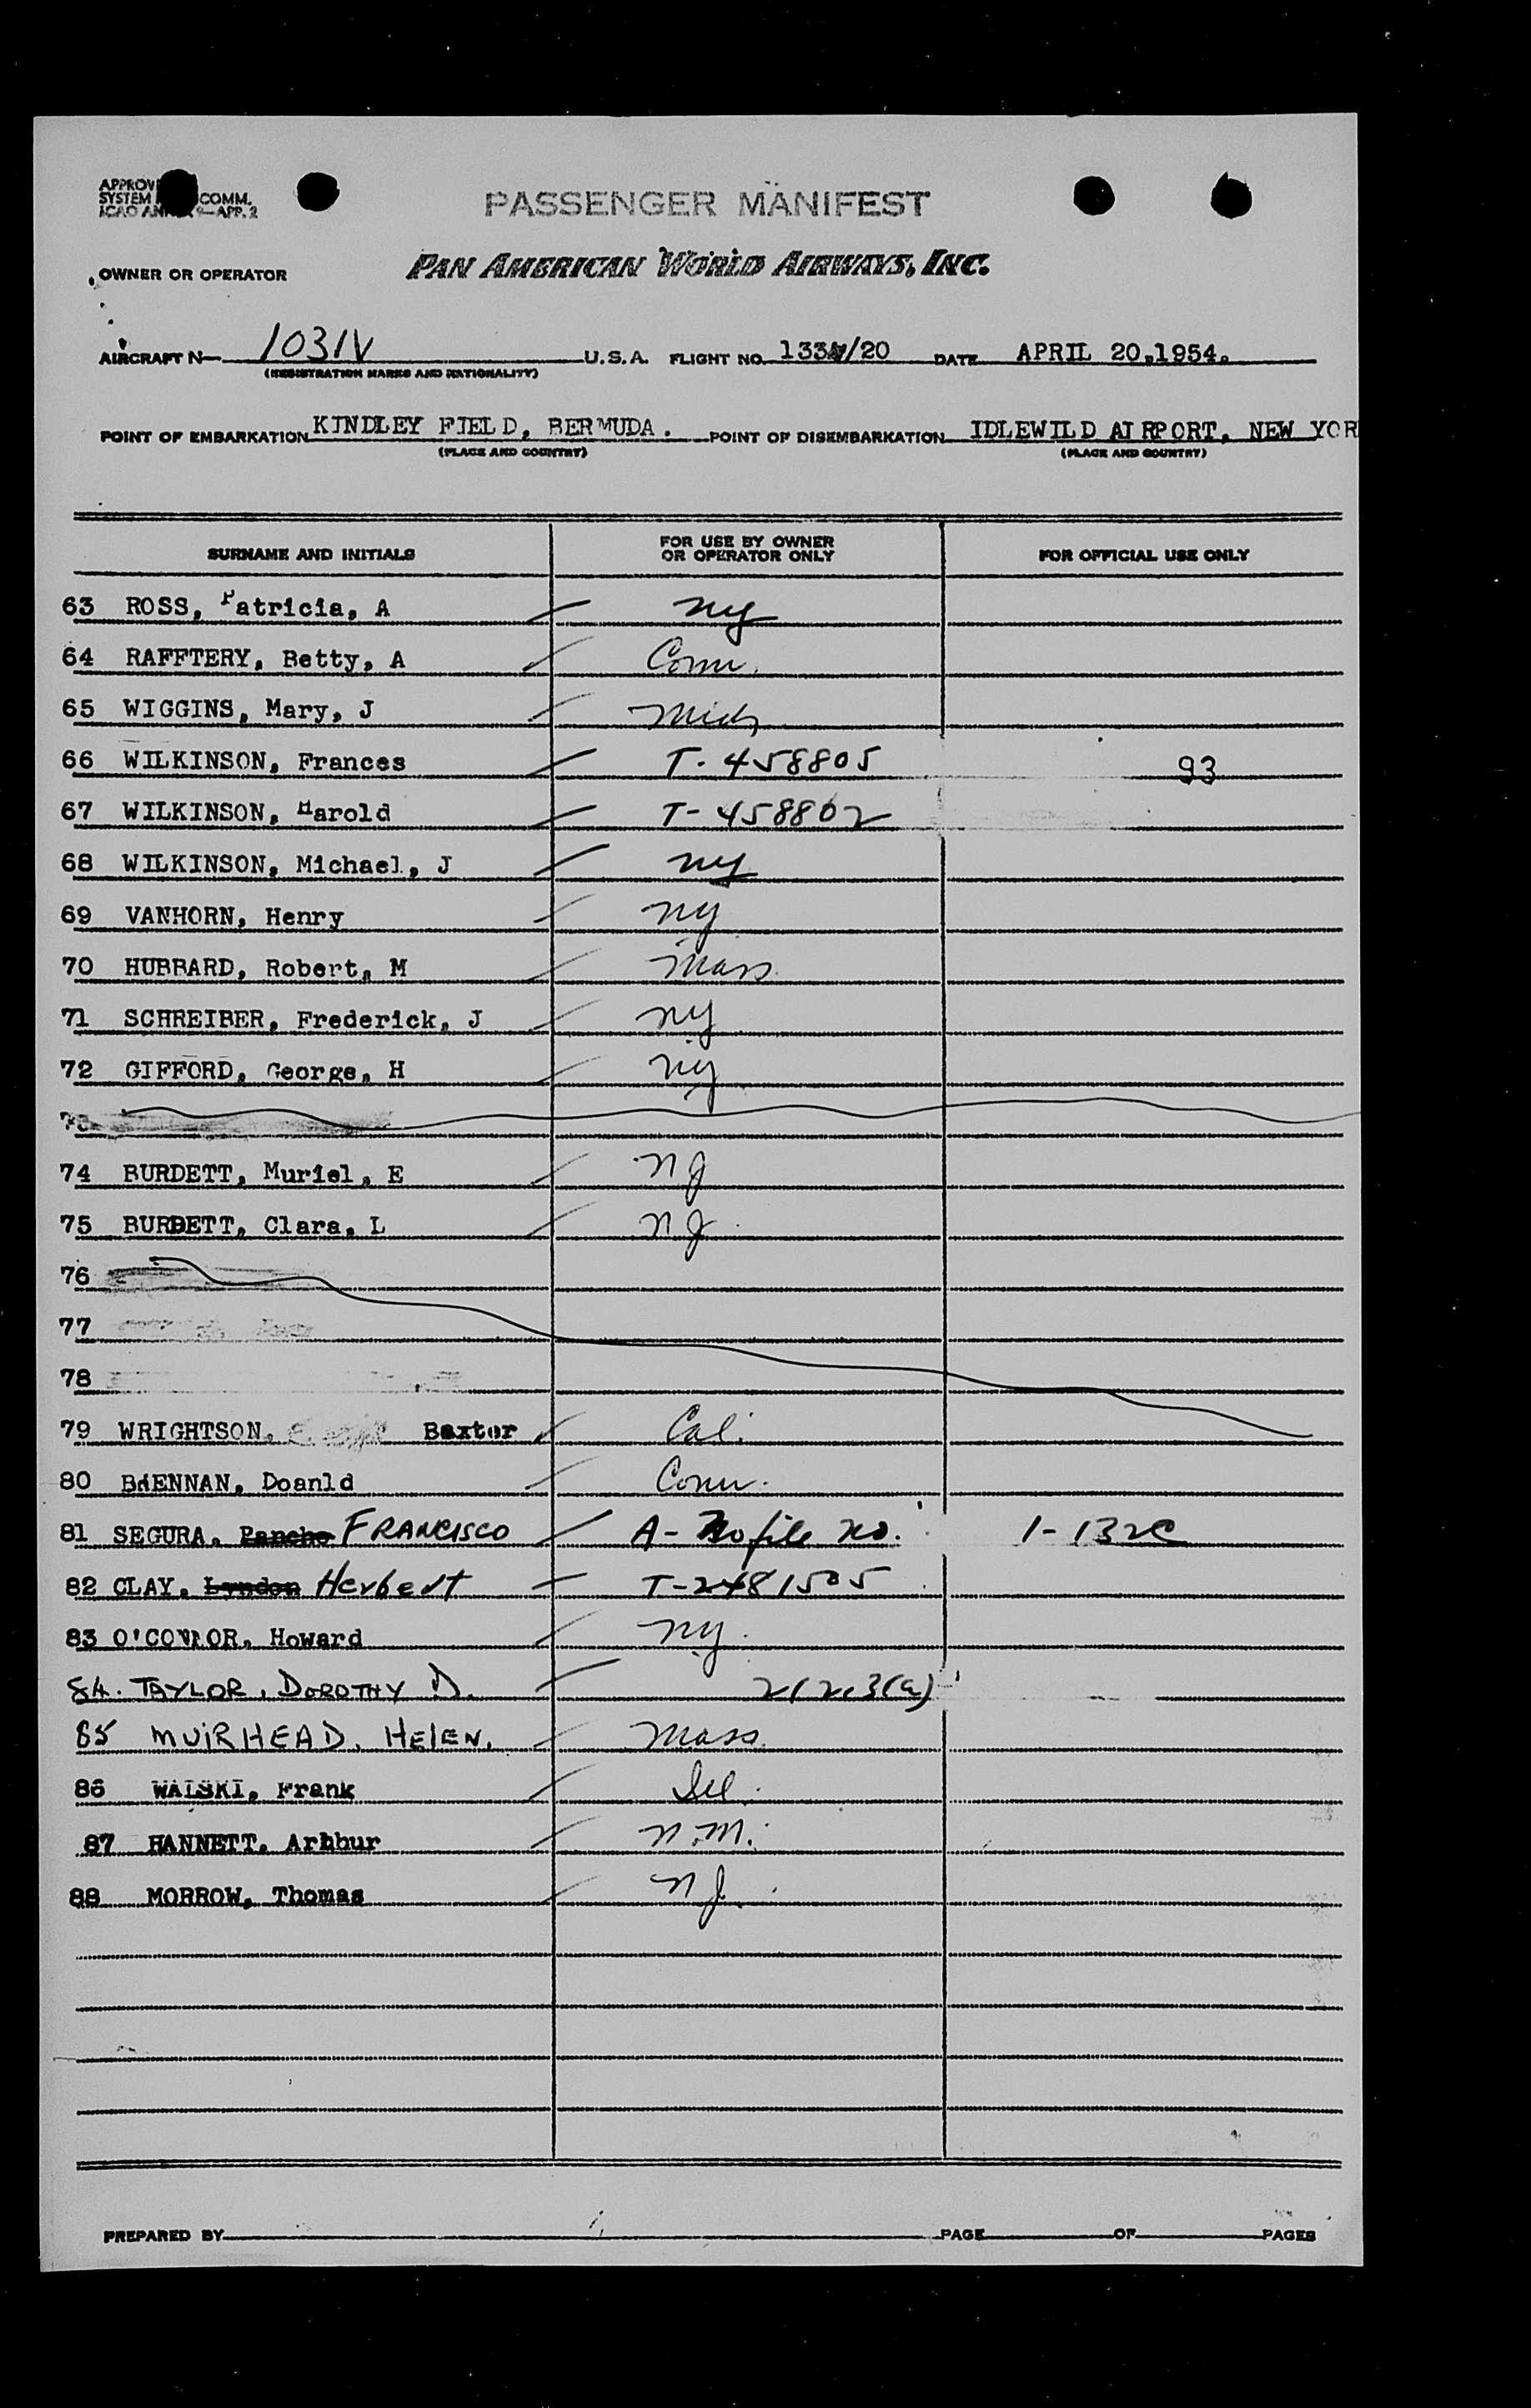 APPROV
SYSTEM COMM.
ICAO AN 9—APP. 2
PASSENGER MANIFEST
OWNER OR OPERATOR PAN AMERICAN WORLD AIRWAYS, INC.
AIRCRAFT N— 1031V U.S.A. FLIGHT NO. 133 /20 DATE APRIL 20,1954.
(REGISTRATION MARKS AND NATIONALITY)
POINT OF EMBARKATION KINDLEY FIELD, BERMUDA. POINT OF DISEMBARKATION IDLEWILD AIRPORT, NEW YOR
(PLACE AND COUNTRY) (PLACE AND COUNTRY)
SURNAME AND INITIALS FOR USE BY OWNER OR OPERATOR ONLY FOR OFFICIAL USE ONLY
63 ROSS, Patricia, A ny
64 RAFFTERY, Betty, A Conn.
65 WIGGINS, Mary, J Mich
66 WILKINSON, Frances T-458805 93
67 WILKINSON, Harold T-458802
68 WILKINSON, Michael, J ny
69 VANHORN, Henry ny
70 HUBBARD, Robert, M Mass.
71 SCHREIBER, Frederick, J ny
72 GIFFORD, George, H ny
74 BURDETT, Muriel, E NJ
75 BURDETT, Clara, L NJ
76
77
78
79 WRIGHTSON, Baxter Cal.
80 BRENNAN, Doanld Conn.
81 SEGURA, Pancho FRANCISCO A- No file no. 1-132C
82 CLAY, Lyndon Herbert T-2481505
83 O'CONNOR, Howard ny.
84. TAYLOR, DOROTHY D. 212.3(a)
85 MUIRHEAD, HELEN. Mass.
86 WALSKI, Frank Del.
87 HANNETT, Arhbur N.M.
88 MORROW, Thomas NJ.
PREPARED BY PAGE OF PAGES